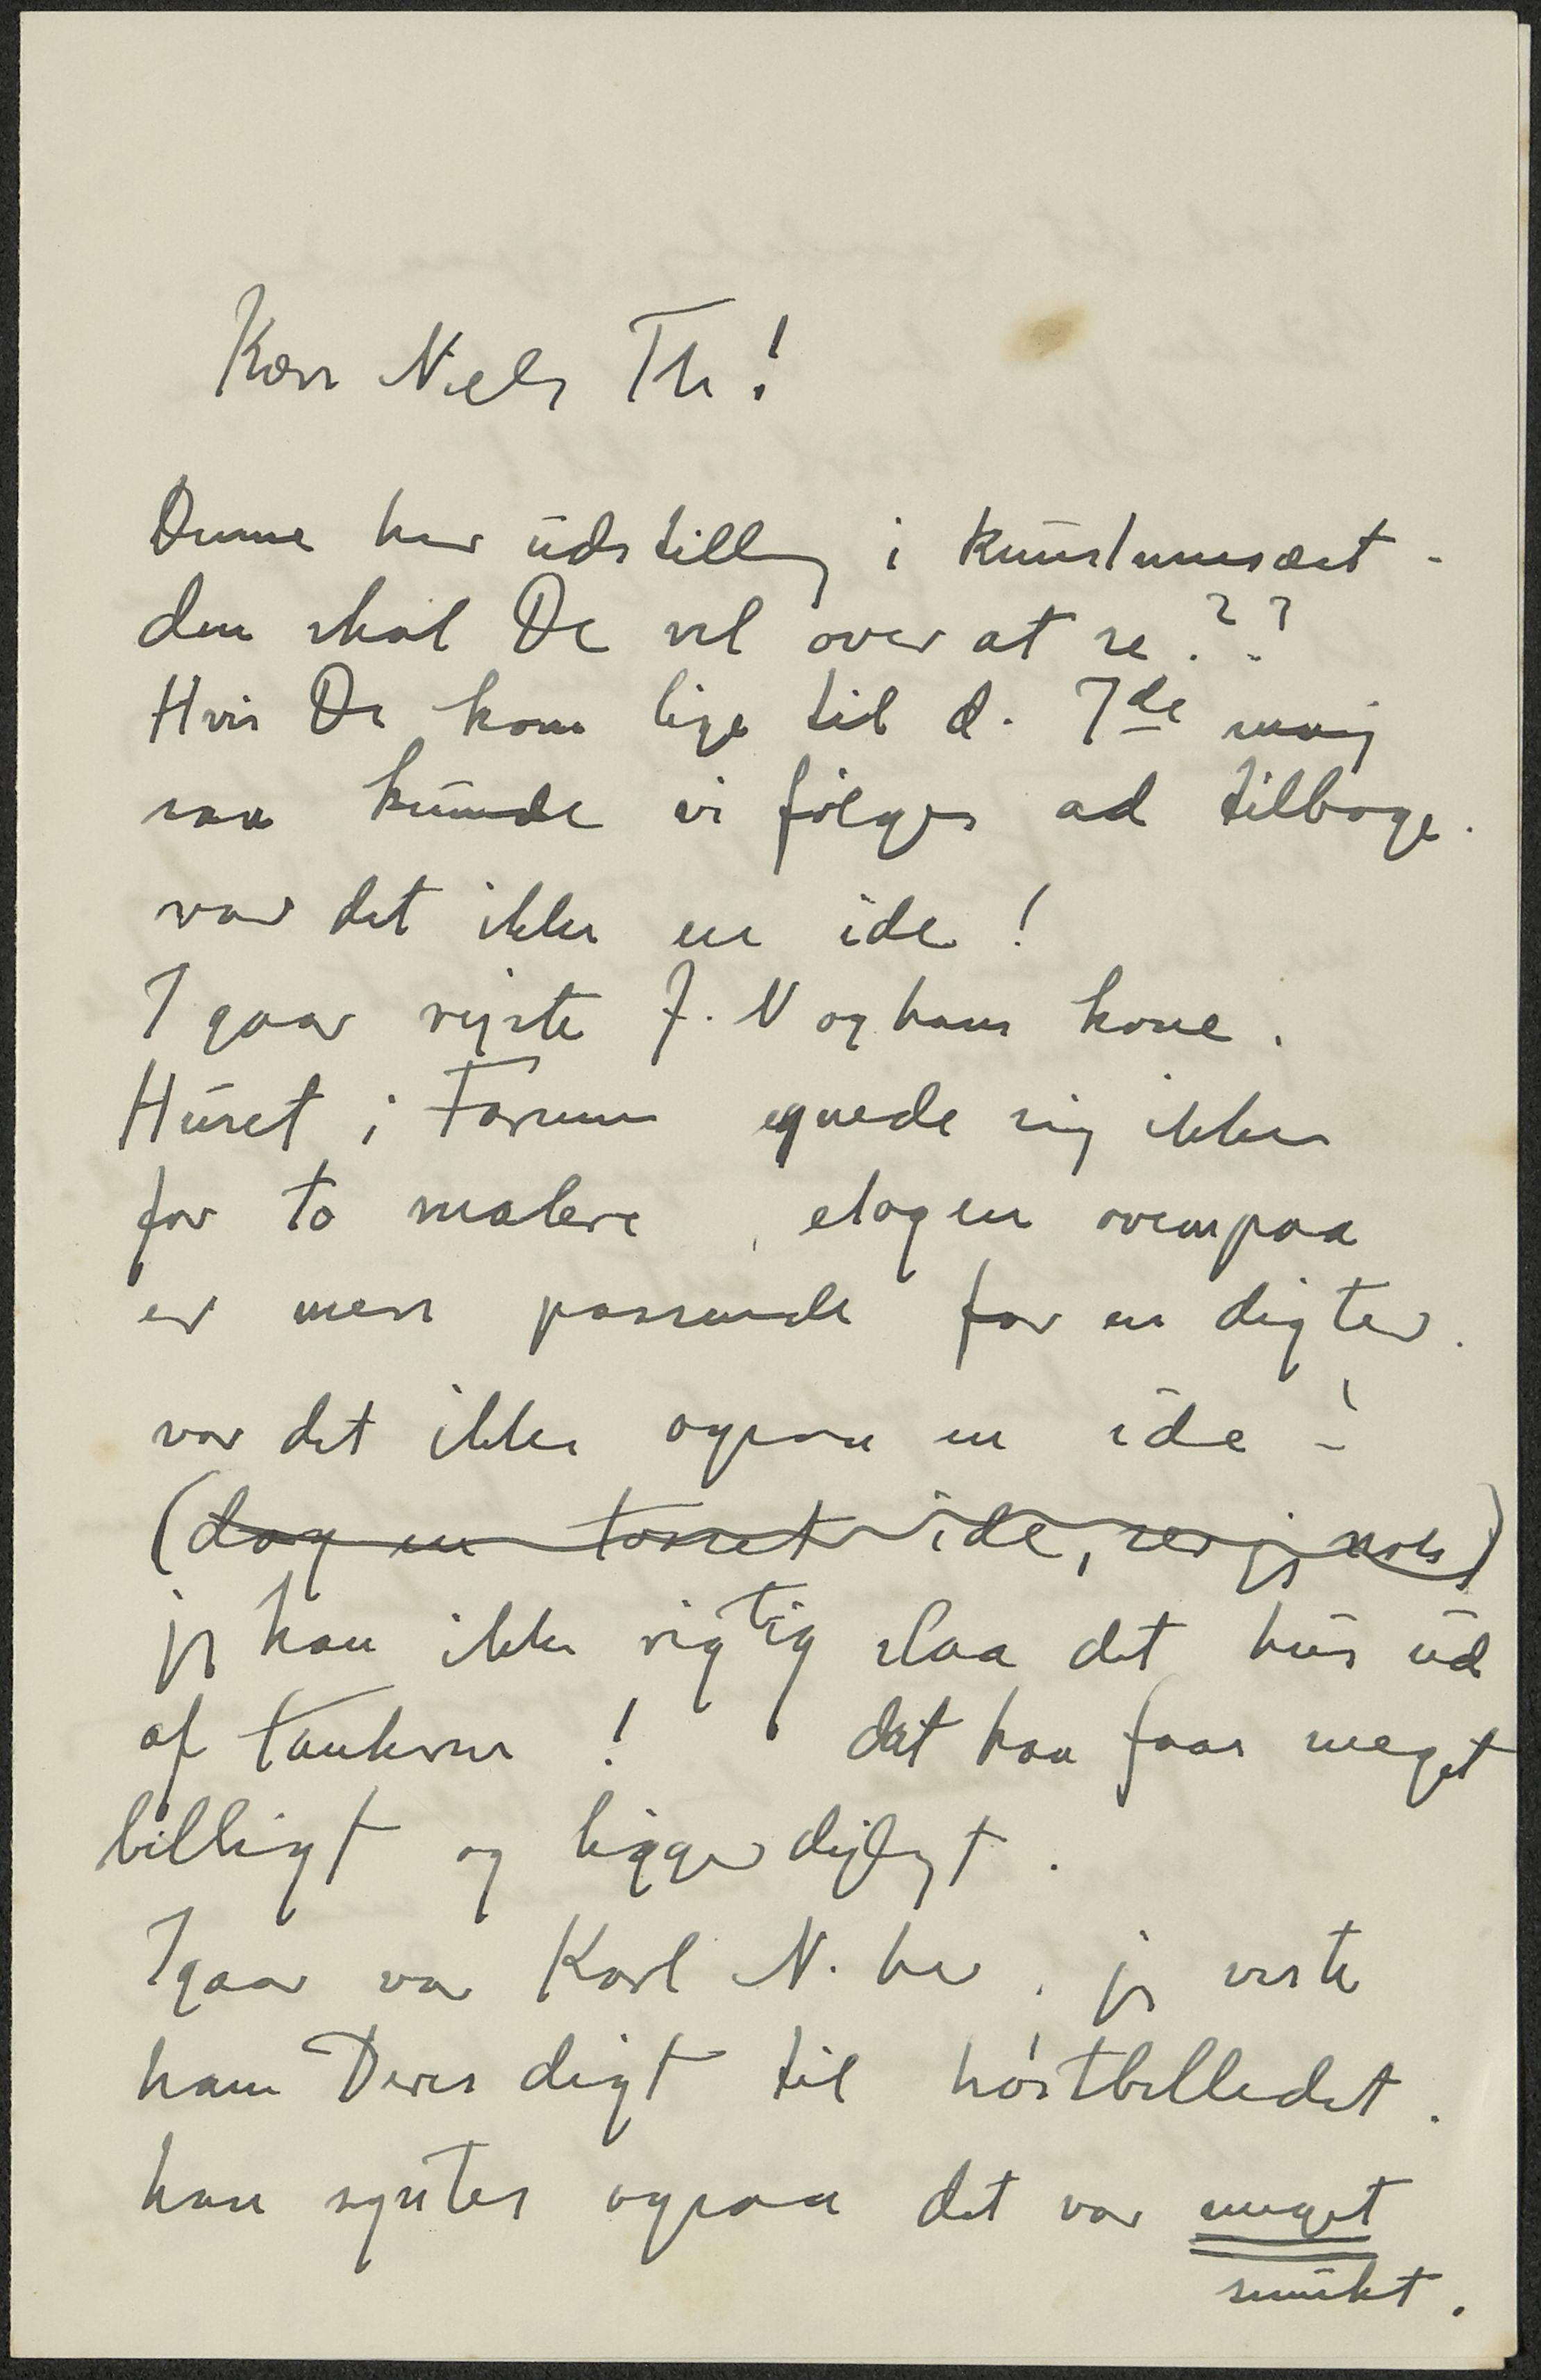 Kære Niels Th!
Denne her udstilling i kunstmusæet -
den skal De vel over at se??
Hvis De kom lige til d. 7de maj
saa kunde vi følges ad tilbage.
var det ikke en ide!
I gaar rejste J. N og hans kone.
Huset i Farum egnede sig ikke
for to malere, etagen ovenpaa
er mere passende for en digter.
var det ikke ogsaa en ide!
(dog en tosset ide, ser jeg nok)
jeg kan ikke rigtig slaa det hus ud
af tankerne! det kan faas meget
billigt og ligger dejligt.
I gaar var Karl N. her, jeg viste
ham Deres digt til høstbilledet.
han syntes ogsaa det var meget
smukt.